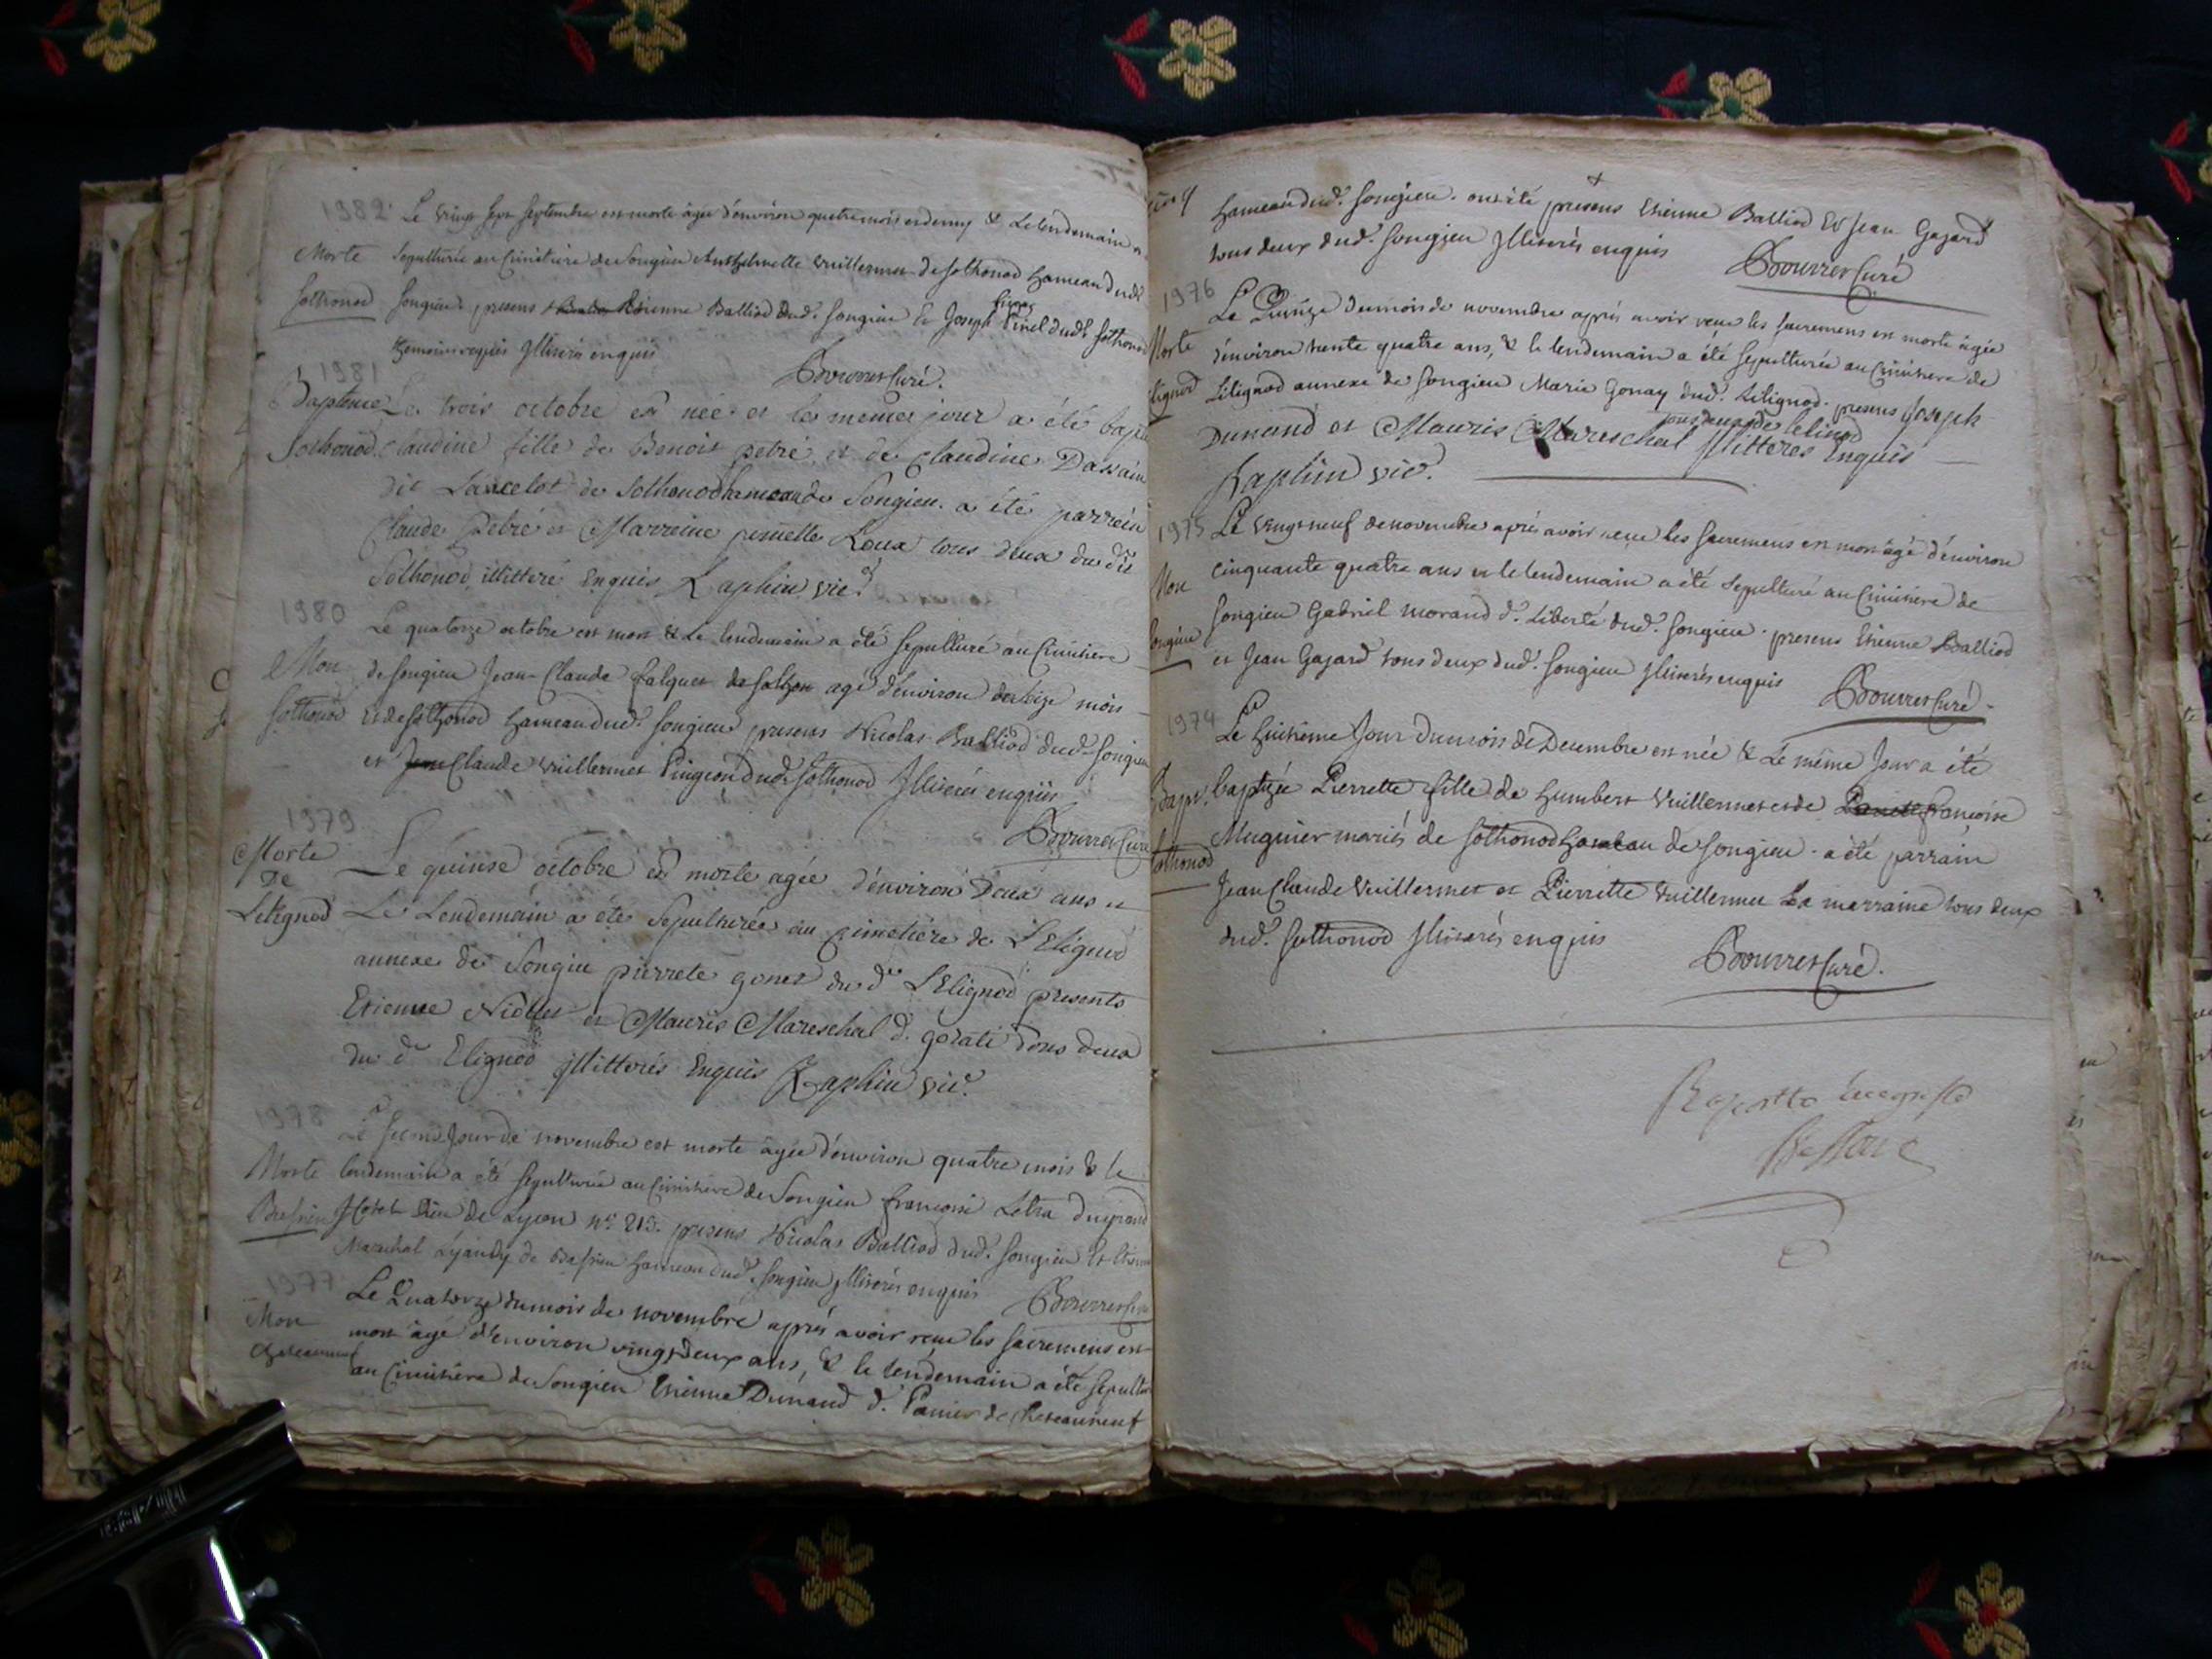 1982. Le vingt sept septembre est morte âgée d'environ quatre mois et demy & Le lendemain a
Morte sepulturée au Cimitiere de Songieu Anthelmette Vuillermet de Sothonod hameau dudt
Sothonod Songieu. presens Etienne Balliod dud. Songieu et Joseph Pinel dudt Sothonod
temoins requis Illiterés enquis
Bourret Curé.
1981
Baptême Le trois octobre est née et le meme jour a été bapt
Sothonod Claudine fille de Benoit petré et de Claudine
dit Lancelot de Sothonod hameau de Songieu. a été parrein
Claude Petré et Marreine pernelle Roux tous deux du dit
Sothonod illitteré Enquis Raphin vic.
1980
Le quatorze octobre est mort & Le lendemain a été sepulturé au Cimitiere
Mort de Songieu Jean-Claude falquet agé d'environ seize mois
Sothonod et de Sothonod hameau dud. Songieu presens Nicolas Balliod dud. Songieu
et Claude Vuillermet Pingeon dud. Sothonod Illiterés enquis
Bourret Curé
1979
Morte Le quinse octobre est morte agée d'environ Deux ans et
De
Letignod Le Lendemain a été sepulturée au cimetiere de L'Elignod
annexe de Songieu pierrete gonet du d. L'Elignod presents
Etienne et Mauris Mareschal d. gorati tous deux
du d. Elignod illitterés Enquis Raphin vic.
1978
Le jour de novembre est morte âgée d'environ quatre mois & le
Morte lendemain a été sepulturée au Cimitiere de Songieu françoise Letra du grand
Hotel Dieu de Lyon nº 213. presens Nicolas Balliod dud. Songieu Et Etienne
Marechal de hameau dud. Songieu Illiterés enquis Bourret Curé
1977
Le Quatorze du mois de novembre après avoir reçu les sacremens est
Mort mort âgé d'environ vingt deux ans, & le lendemain a été sepulturé
Chateauneuf au Cimitiere de Songieu Etienne Dunand d. Panier de Chateauneuf
hameau dud. Songieu. ont été presens Etienne Balliod Et Jean Gajard
tous deux dud. Songieu Illiterés enquis Bourret Curé
1976
Le Quinze du mois de novembre après avoir reçu les sacremens est morte âgée
Morte d'environ trente quatre ans, & le lendemain a été sepulturée au Cimitiere de
Litignod annexe de Songieu Marie Gonay dud. Litignod. presens Joseph
Dunand et Mauris Mareschal Illitteres Enquis
Raphin vic.
1975
Le vingt neuf de novembre après avoir reçu les sacremens est mort âgé d'environ
Mort cinquante quatre ans et le lendemain a été sepulturé au Cimitiere de
Songieu Songieu Gabriel morand d. Liberté dud. Songieu. presens Etienne Balliod
et Jean Gajard tous deux dud. Songieu Illiterés enquis Bourret Curé.
1974
Le huitième Jour du mois de Decembre est née & Le même Jour a été
Bapt. baptizée Pierrette fille de humbert Vuillermet et de françoise
Sothonod Muguier mariés de Sothonod hameau de Songieu. a été parrain
Jean Claude Vuillermet et Pierrette Vuillermet La marraine tous deux
dud. Sothonod Illiterés enquis
Bourret Curé.